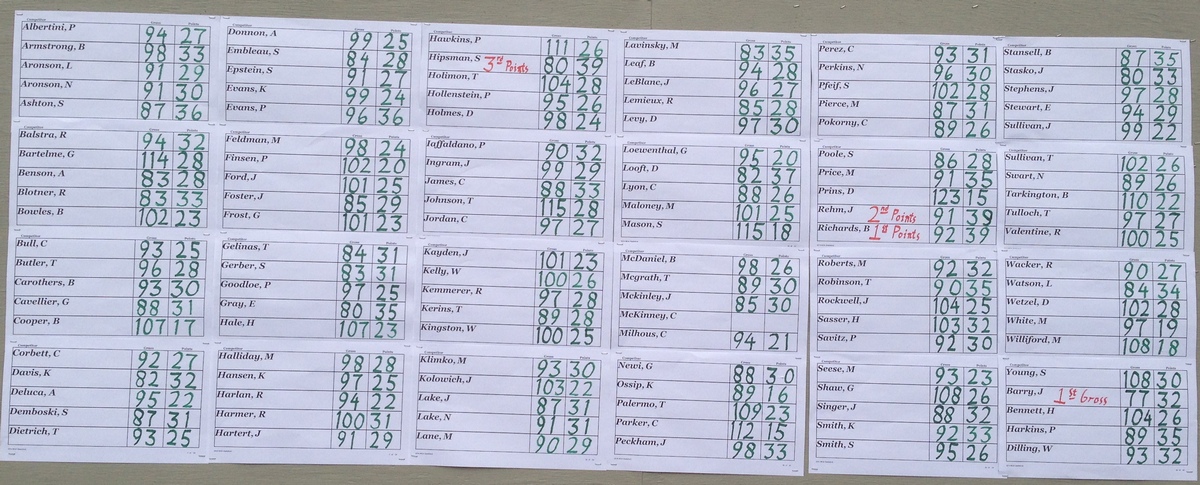 Competitor Gross Points
Albertini, P 94 27
Armstrong, B 98 33
Aronson, L 91 29
Aronson, N 91 30
Ashton, S 87 36
Competitor Gross Points
Balstra, R 94 32
Bartelme, G 114 28
Benson, A 83 28
Blotner, R 83 33
Bowles, B 102 23
Competitor Gross Points
Bull, C 93 25
Butler, T 96 28
Carothers, B 93 30
Cavellier, G 88 31
Cooper, B 107 17
Competitor Gross Points
Corbett, C 92 27
Davis, K 82 32
Deluca, A 95 22
Demboski, S 87 31
Dietrich, T 93 25
Competitor Gross Points
Donnon, A 99 25
Embleau, S 84 28
Epstein, S 91 27
Evans, K 99 24
Evans, P 96 36
Competitor Gross Points
Feldman, M 98 24
Finsen, P 102 20
Ford, J 101 25
Foster, J 85 29
Frost, G 101 23
Competitor Gross Points
Gelinas, T 84 31
Gerber, S 83 31
Goodloe, P 97 25
Gray, E 80 35
Hale, H 107 23
Competitor Gross Points
Halliday, M 98 28
Hansen, K 97 25
Harlan, R 94 22
Harmer, R 100 31
Hartert, J 91 29
Competitor Gross Points
Hawkins, P 111 26
Hipsman, S 3rd Points 80 39
Holimon, T 104 28
Hollenstein, P 95 26
Holmes, D 98 24
Competitor Gross Points
Iaffaldano, P 90 32
Ingram, J 99 29
James, C 88 33
Johnson, T 115 28
Jordan, C 97 27
Competitor Gross Points
Kayden, J 101 23
Kelly, W 100 26
Kemmerer, R 97 28
Kerins, T 89 28
Kingston, W 100 25
Competitor Gross Points
Klimko, M 93 30
Kolowich, J 103 22
Lake, J 87 31
Lake, N 91 31
Lane, M 90 29
Competitor Gross Points
Lavinsky, M 83 35
Leaf, B 94 28
LeBlanc, J 96 27
Lemieux, R 85 28
Levy, D 97 30
Competitor Gross Points
Loewenthal, G 95 20
Looft, D 82 37
Lyon, C 88 26
Maloney, M 101 25
Mason, S 115 18
Competitor Gross Points
McDaniel, B 98 26
Mcgrath, T 89 30
Mckinley, J 85 30
McKinney, C
Milhous, C 94 21
Competitor Gross Points
Newi, G 88 30
Ossip, K 89 16
Palermo, T 109 23
Parker, C 112 15
Peckham, J 98 33
Competitor Gross Points
Perez, C 93 31
Perkins, N 96 30
Pfeif, S 102 28
Pierce, M 87 31
Pokorny, C 89 26
Competitor Gross Points
Poole, S 86 28
Price, M 91 35
Prins, D 123 15
Rehm, J 2nd Points 91 39
Richards, B 1st Points 92 39
Competitor Gross Points
Roberts, M 92 32
Robinson, T 90 35
Rockwell, J 104 25
Sasser, H 103 32
Savitz, P 92 30
Competitor Gross Points
Seese, M 93 23
Shaw, G 108 26
Singer, J 88 32
Smith, K 92 33
Smith, S 95 26
Competitor Gross Points
Stansell, B 87 35
Stasko, J 80 33
Stephens, J 97 28
Stewart, E 94 29
Sullivan, J 99 22
Competitor Gross Points
Sullivan, T 102 26
Swart, N 89 26
Tarkington, B 110 22
Tulloch, T 97 27
Valentine, R 100 25
Competitor Gross Points
Wacker, R 90 27
Watson, L 84 34
Wetzel, D 102 28
White, M 97 19
Williford, M 108 18
Competitor Gross Points
Young, S 108 30
Barry, J 1st Gross 77 32
Bennett, H 104 26
Harkins, P 89 35
Dilling, W 93 32